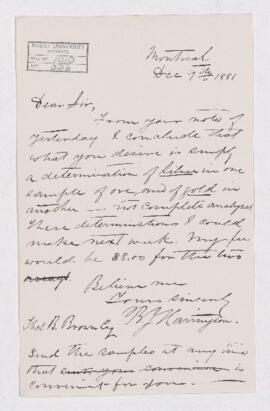 McGILL UNIVERSITY
ARCHIVES
ACC. NO. 1010
REF.
Montreal
Dec 7th 1881
Dear Sir,
From your note of
yesterday I conclude that
what you desire is simply
a determination of Silver in one
sample of ore, and of gold in
another — not complete analyses.
These determinations I could
make next week. My fee
would be $8.00 for the two
Believe me
Yours sincerely
B J Harrington.
Thos. B. Brown Esq
Send the samples at any time
that suits your convenience is
convenient for you. —